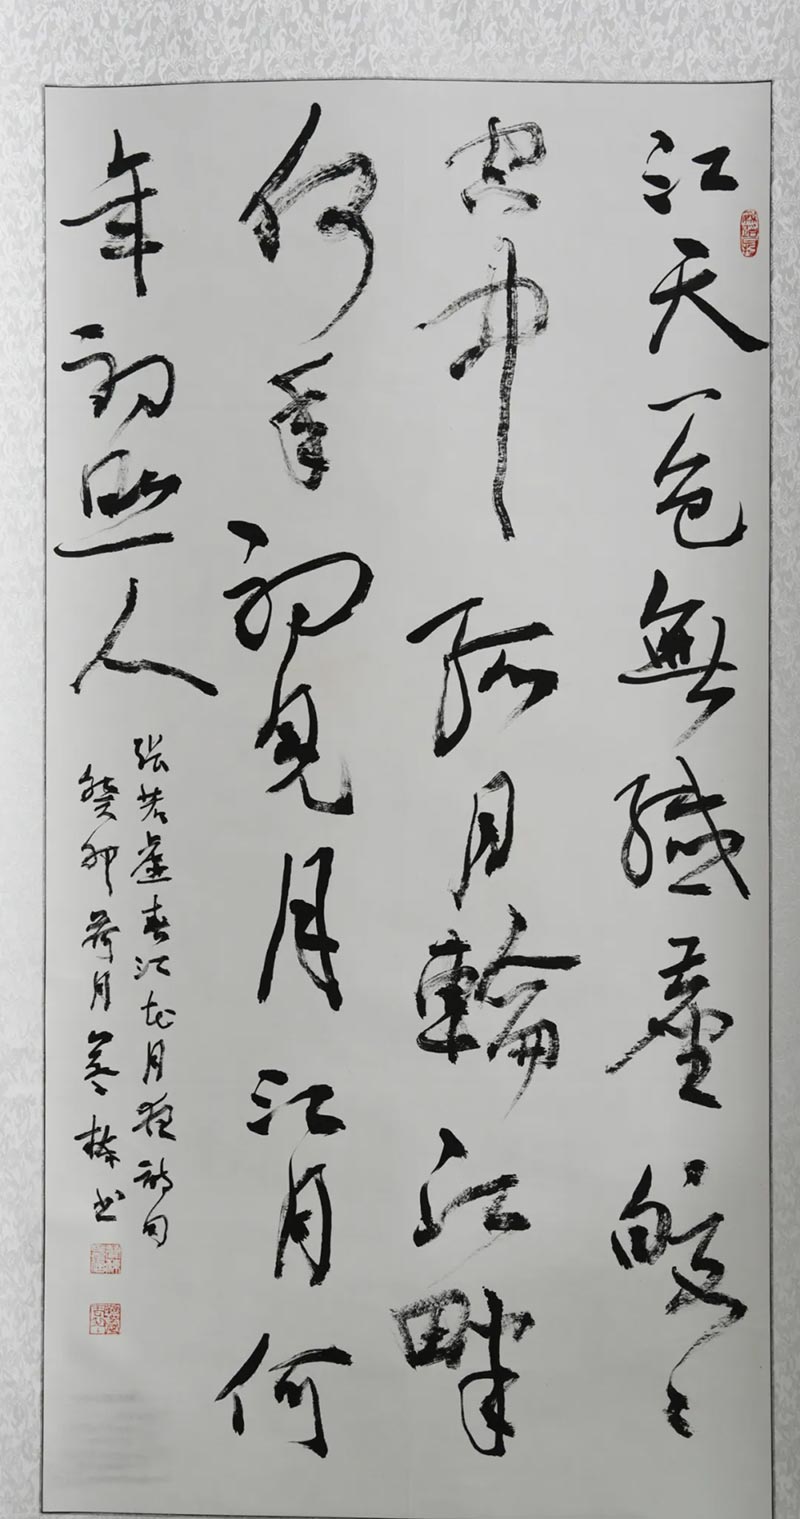 江天一色無纖塵皎〻
空中孤月輪江畔
何年初見月江月何
年初照人
张若虚春江花月夜詩句
癸卯荷月书